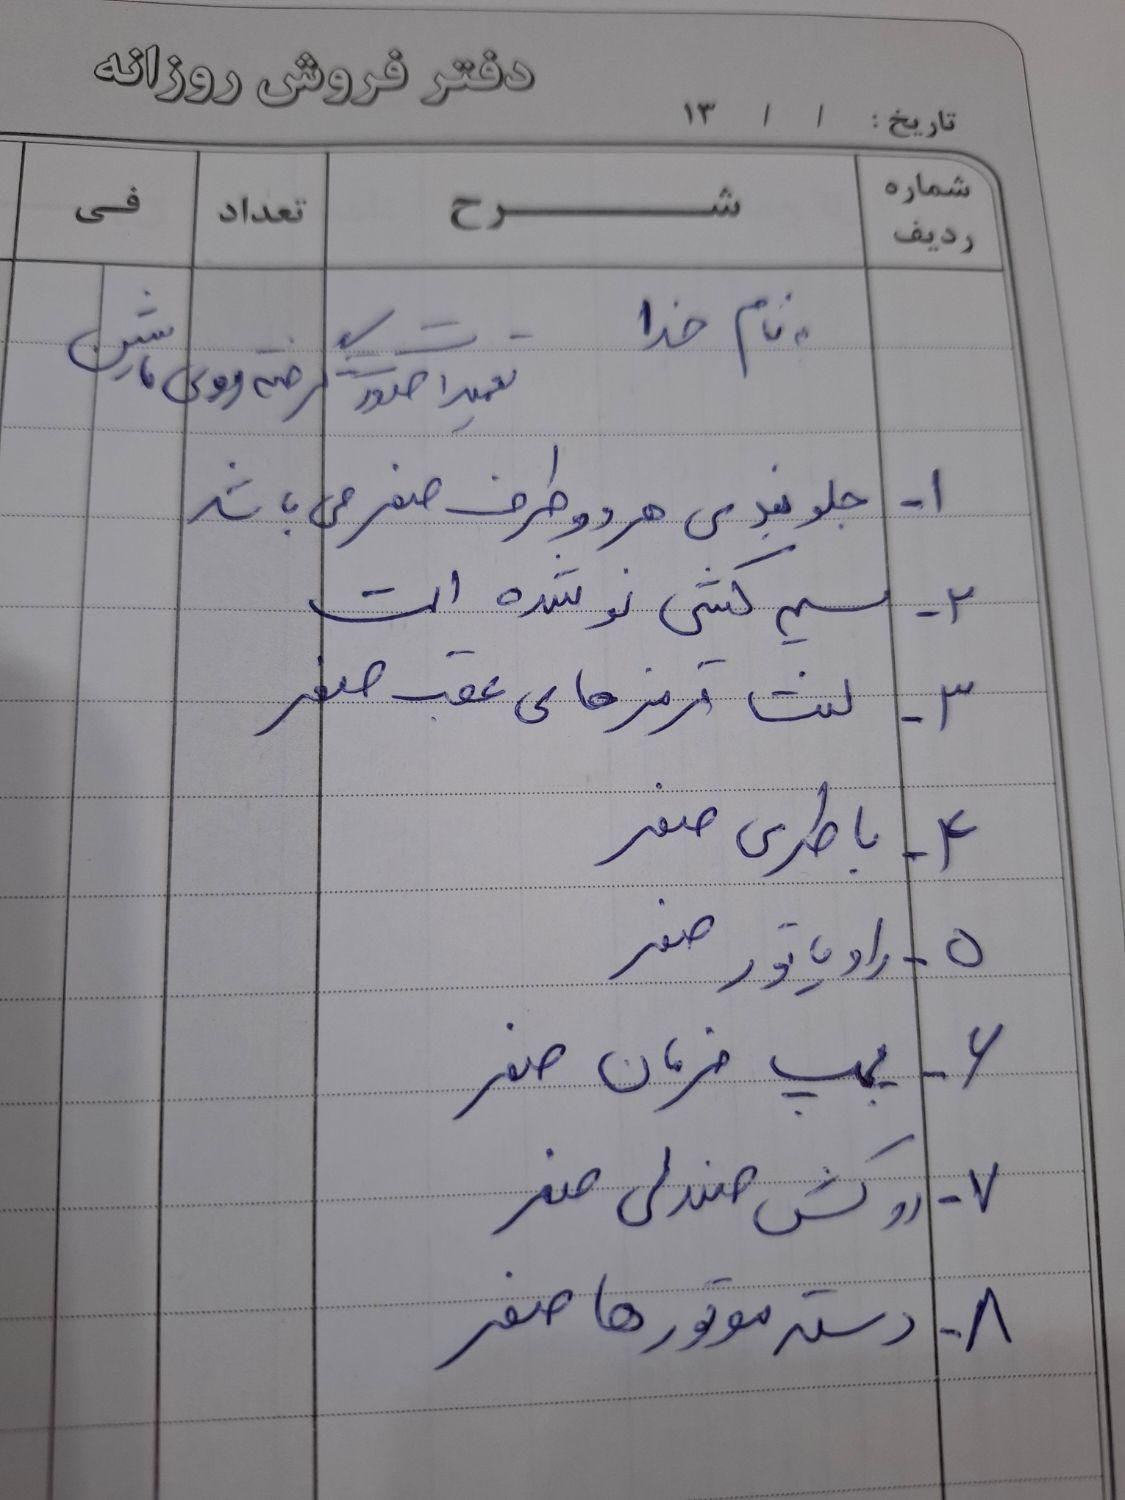 دفتر فروش روزانه
تاریخ: / / ۱۳
شماره ردیف شرح تعداد فی
به نام خدا
تعمیرات صورت گرفته روی ماشین
۱- جلوبندی هر دو طرف صفر می باشد
۲- سیم کشی نو شده است
۳- لنت ترمزهای عقب صفر
۴- باطری صفر
۵- رادیاتور صفر
۶- پمپ فرمان صفر
۷- روکش صندلی صفر
۸- دسته موتورها صفر